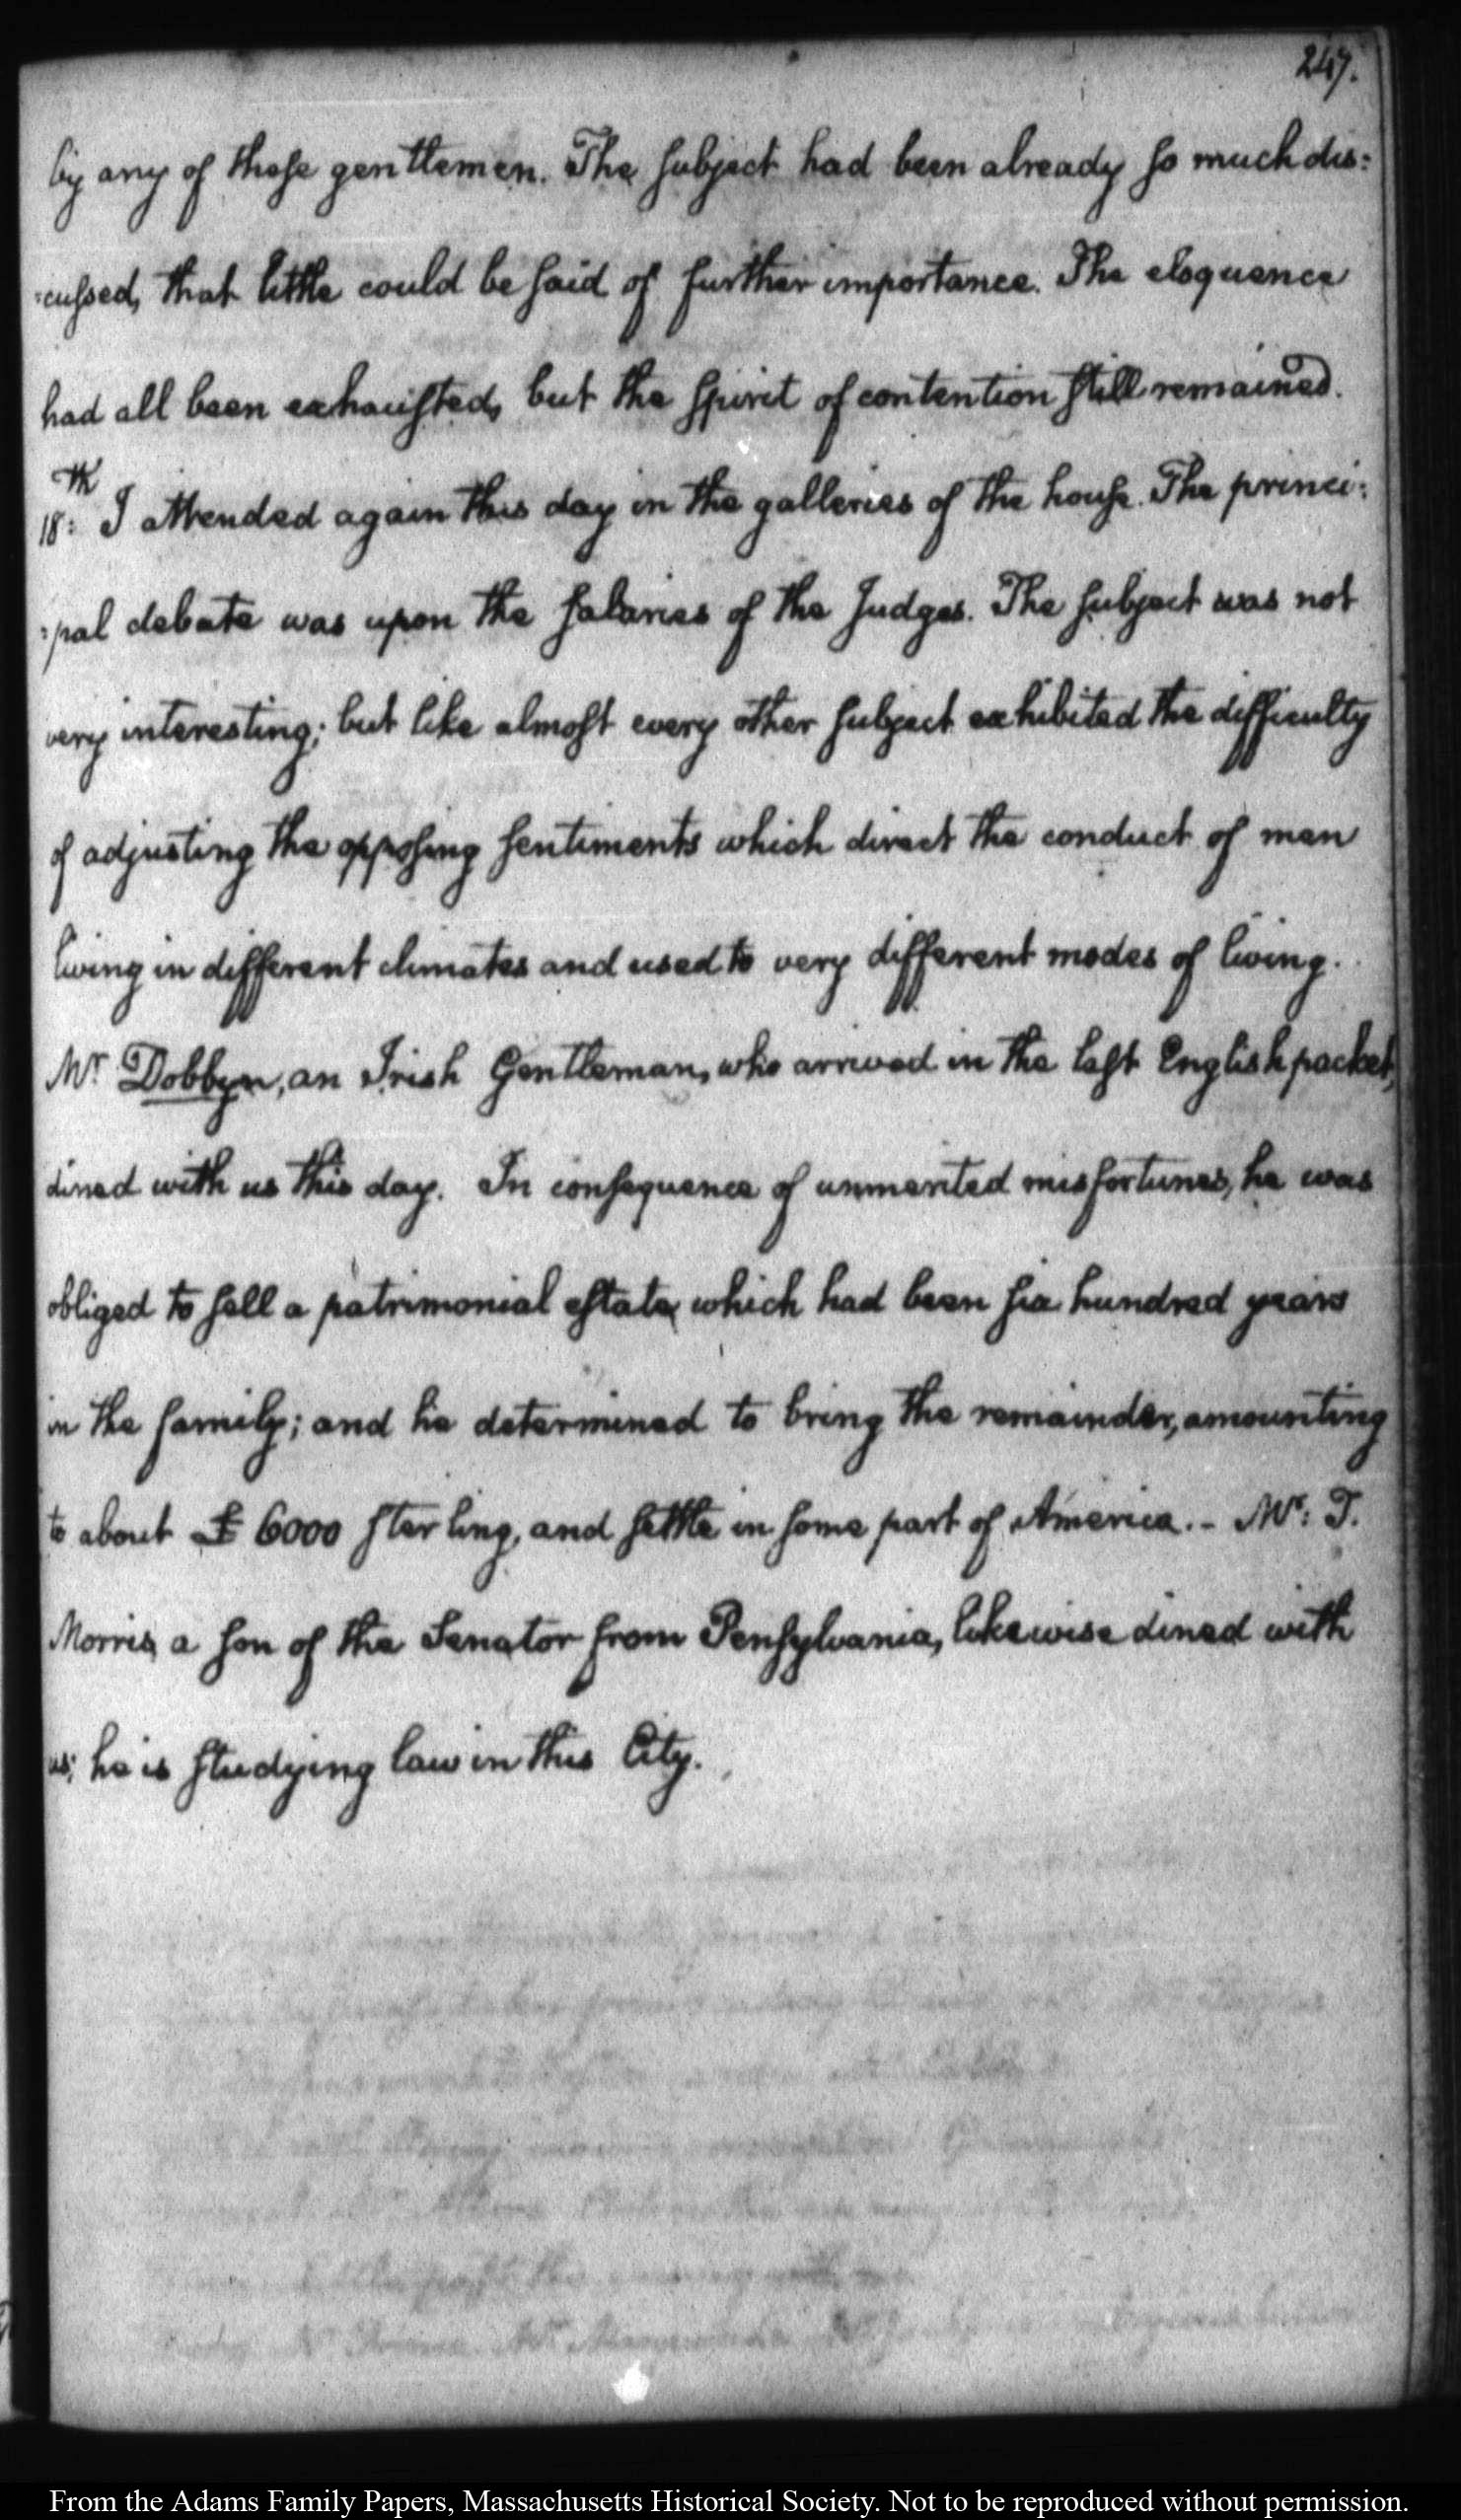 247.
by any of those gentlemen. The subject had been already so much dis:
:cussed, that little could be said of further importance. The eloquence
had all been exhausted, but the spirit of contention still remained.
18:th I attended again this day in the galleries of the house. The princi:
:pal debate was upon the salaries of the Judges. The subject was not
very interesting; but like almost every other subject exhibited the difficulty
of adjusting the opposing sentiments which direct the conduct of men
living in different climates and used to very different modes of living.
Mr Dobbyn, an Irish Gentleman, who arrived in the last English packet,
dined with us this day. In consequence of unmerited misfortunes, he was
obliged to sell a patrimonial estate, which had been six hundred years
in the family; and he determined to bring the remainder, amounting
to about £ 6000 sterling, and settle in some part of America. - Mr: T.
Morris, a son of the Senator from Pensylvania, likewise dined with
us; he is studying law in this City.
From the Adams Family Papers, Massachusetts Historical Society. Not to be reproduced without permission.